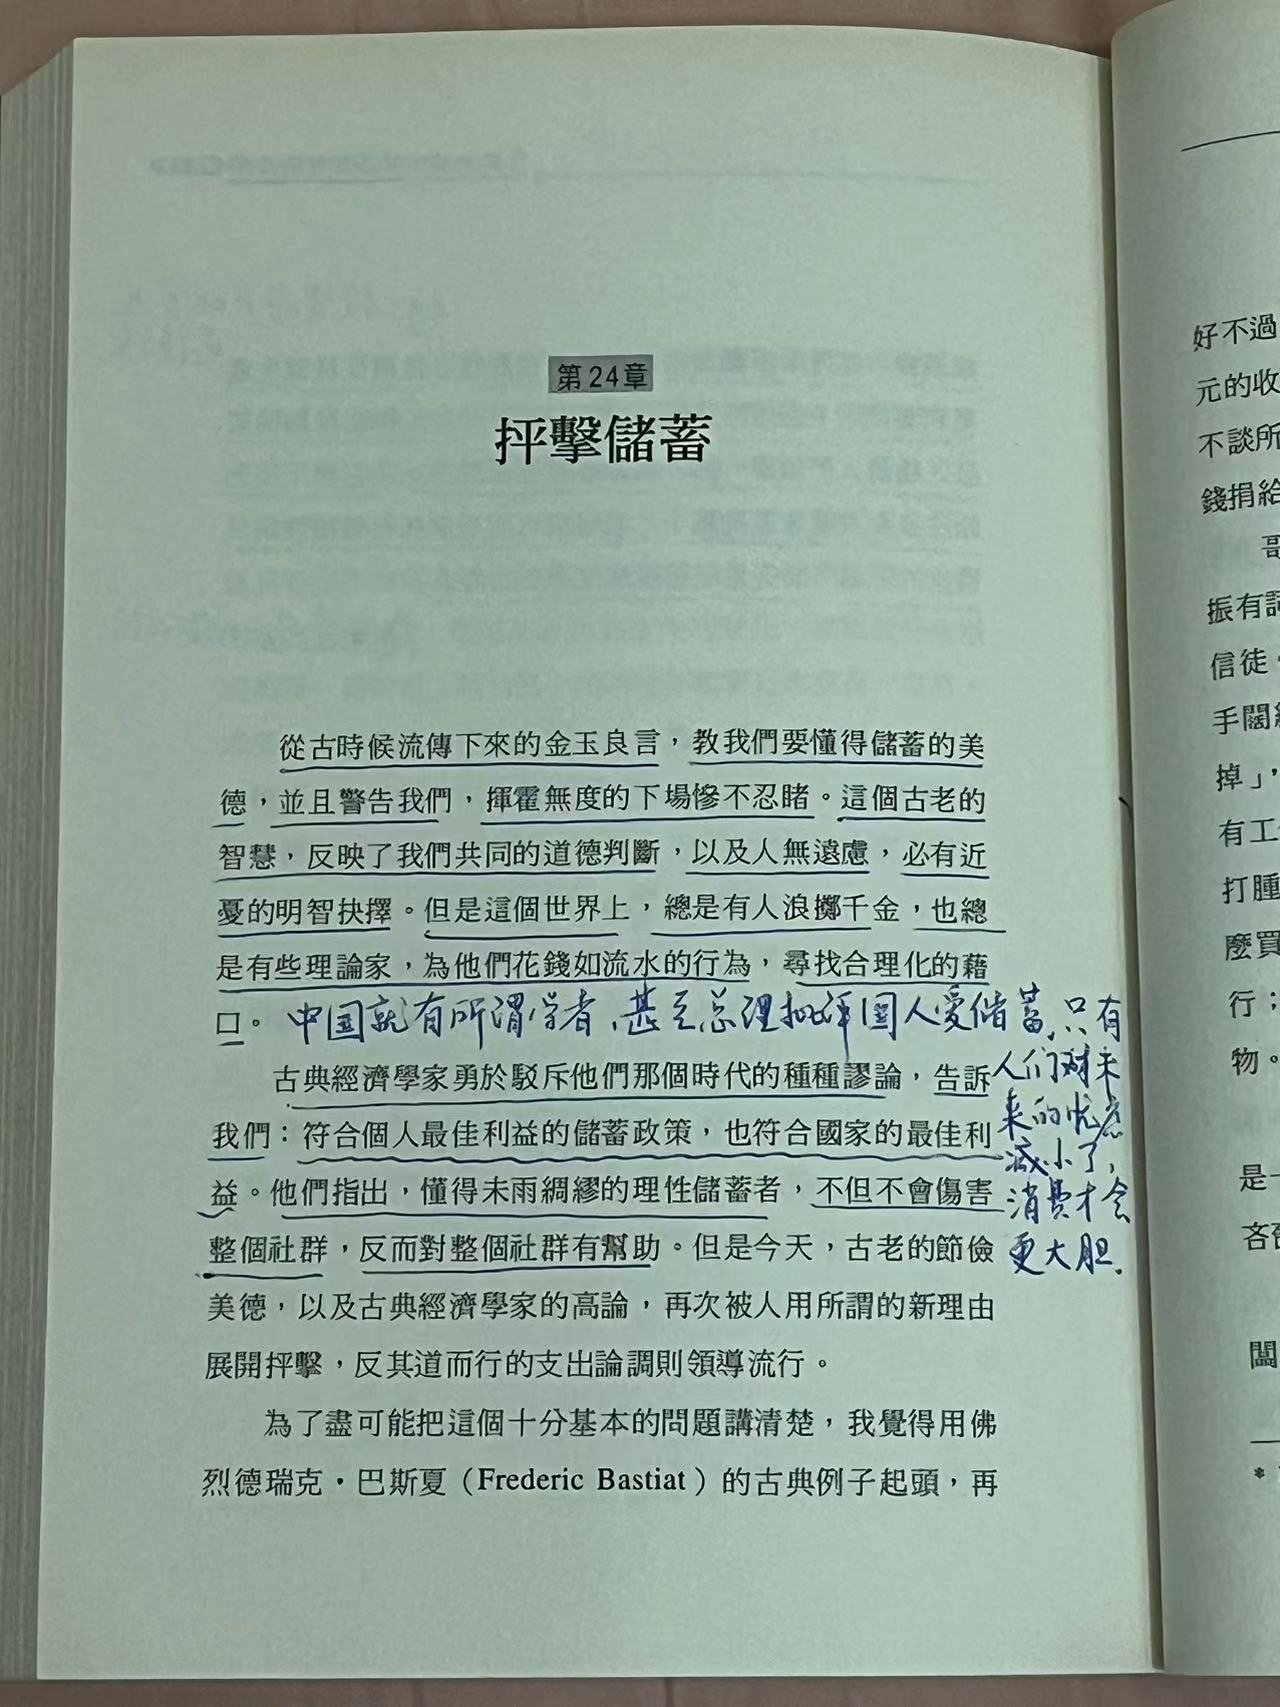 第24章
抨擊儲蓄
從古時候流傳下來的金玉良言，教我們要懂得儲蓄的美
德，並且警告我們，揮霍無度的下場慘不忍睹。這個古老的
智慧，反映了我們共同的道德判斷，以及人無遠慮，必有近
憂的明智抉擇。但是這個世界上，總是有人浪擲千金，也總
是有些理論家，為他們花錢如流水的行為，尋找合理化的藉
口。
中国就有所谓学者，甚至总理批评国人爱储蓄，只有
人们对未
来的忧虑
减小了，
消费才会
更大胆．
古典經濟學家勇於駁斥他們那個時代的種種謬論，告訴
我們：符合個人最佳利益的儲蓄政策，也符合國家的最佳利
益。他們指出，懂得未雨綢繆的理性儲蓄者，不但不會傷害
整個社群，反而對整個社群有幫助。但是今天，古老的節儉
美德，以及古典經濟學家的高論，再次被人用所謂的新理由
展開抨擊，反其道而行的支出論調則領導流行。
為了盡可能把這個十分基本的問題講清楚，我覺得用佛
烈德瑞克·巴斯夏（Frederic Bastiat）的古典例子起頭，再
好不過
元的收
不談所
錢捐給
哥
振有詞
信徒，
手闊
掉」，
有工
打腫
麼買
行；
物。
是一
吝
闆
*